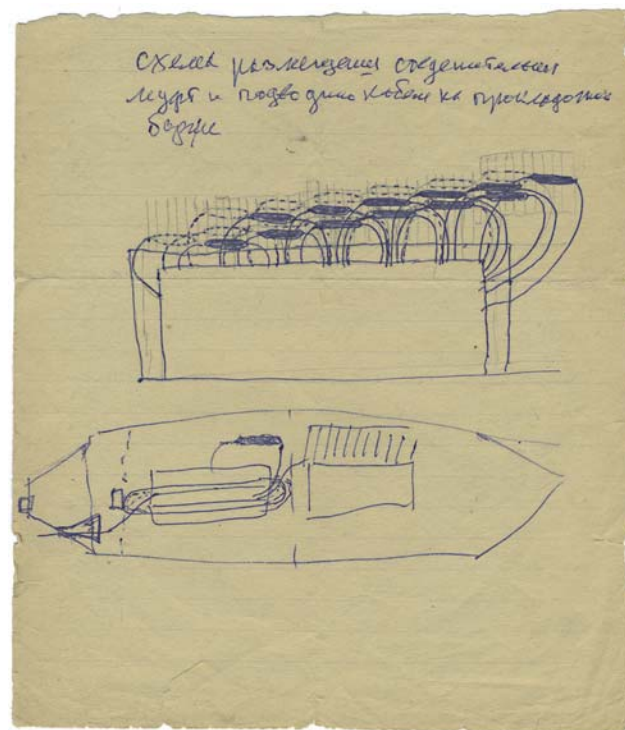 Схема размещения соединительных
муфт и подводного кабеля на прокладочной
барже